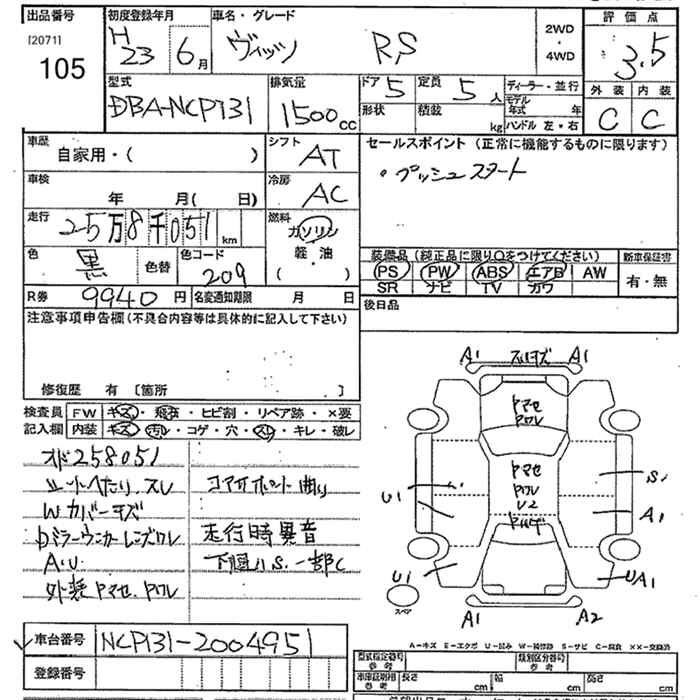 出品番号
[2071]
105
初度登録年月
H 23 6月
車名・グレード
ヴィッツ RS
2WD
・
4WD
評価点
3.5
外装 内装
C C
型式
DBA-NCP131
排気量
1500cc
ドア 5
定員 5人
形状
積載 kg
ディーラー・並行
モデル年式 年
ハンドル 左・右
車歴
自家用・( )
シフト
AT
車検
年 月( 日)
冷房
AC
走行
25万8千051km
燃料
ガソリン
軽・油
( )
色
黒
色替
色コード
209
R券 9940円
名変通知期限 月 日
セールスポイント (正常に機能するものに限ります)
・プッシュスタート
装備品 (純正品に限り○をつけてください)
PS PW ABS エアB AW
SR ナビ TV カワ
新車保証書
有・無
後日品
注意事項申告欄(不具合内容等は具体的に記入して下さい)
修復歴 有 [箇所 ]
検査員 FW キズ・飛石・ヒビ割・リペア跡・×要
記入欄 内装 キズ・汚レ・コゲ・穴・スレ・キレ・破レ
メーター258051
シートヘタリ、スレ
Wカバーキズ
ミラーウィンカーレンズワレ
A.U.
外装ヤマセ、ヤワレ
コアサポート曲り
走行時異音
下廻りS、一部C
A1 スリキズ A1
ヤマセ
ヤワレ
ヤマセ
ヤワレ
U2
U1
S1
A1
U1
UA1
A1
A2
スペア
車台番号 NCP131-2004951
登録番号
A-キズ E-エクボ U-凹み W-補修跡 S-サビ C-腐食 XX-交換済
型式指定番号
参考
類別区分番号
参考
車庫証明用
参考
長さ cm
幅 cm
高さ cm